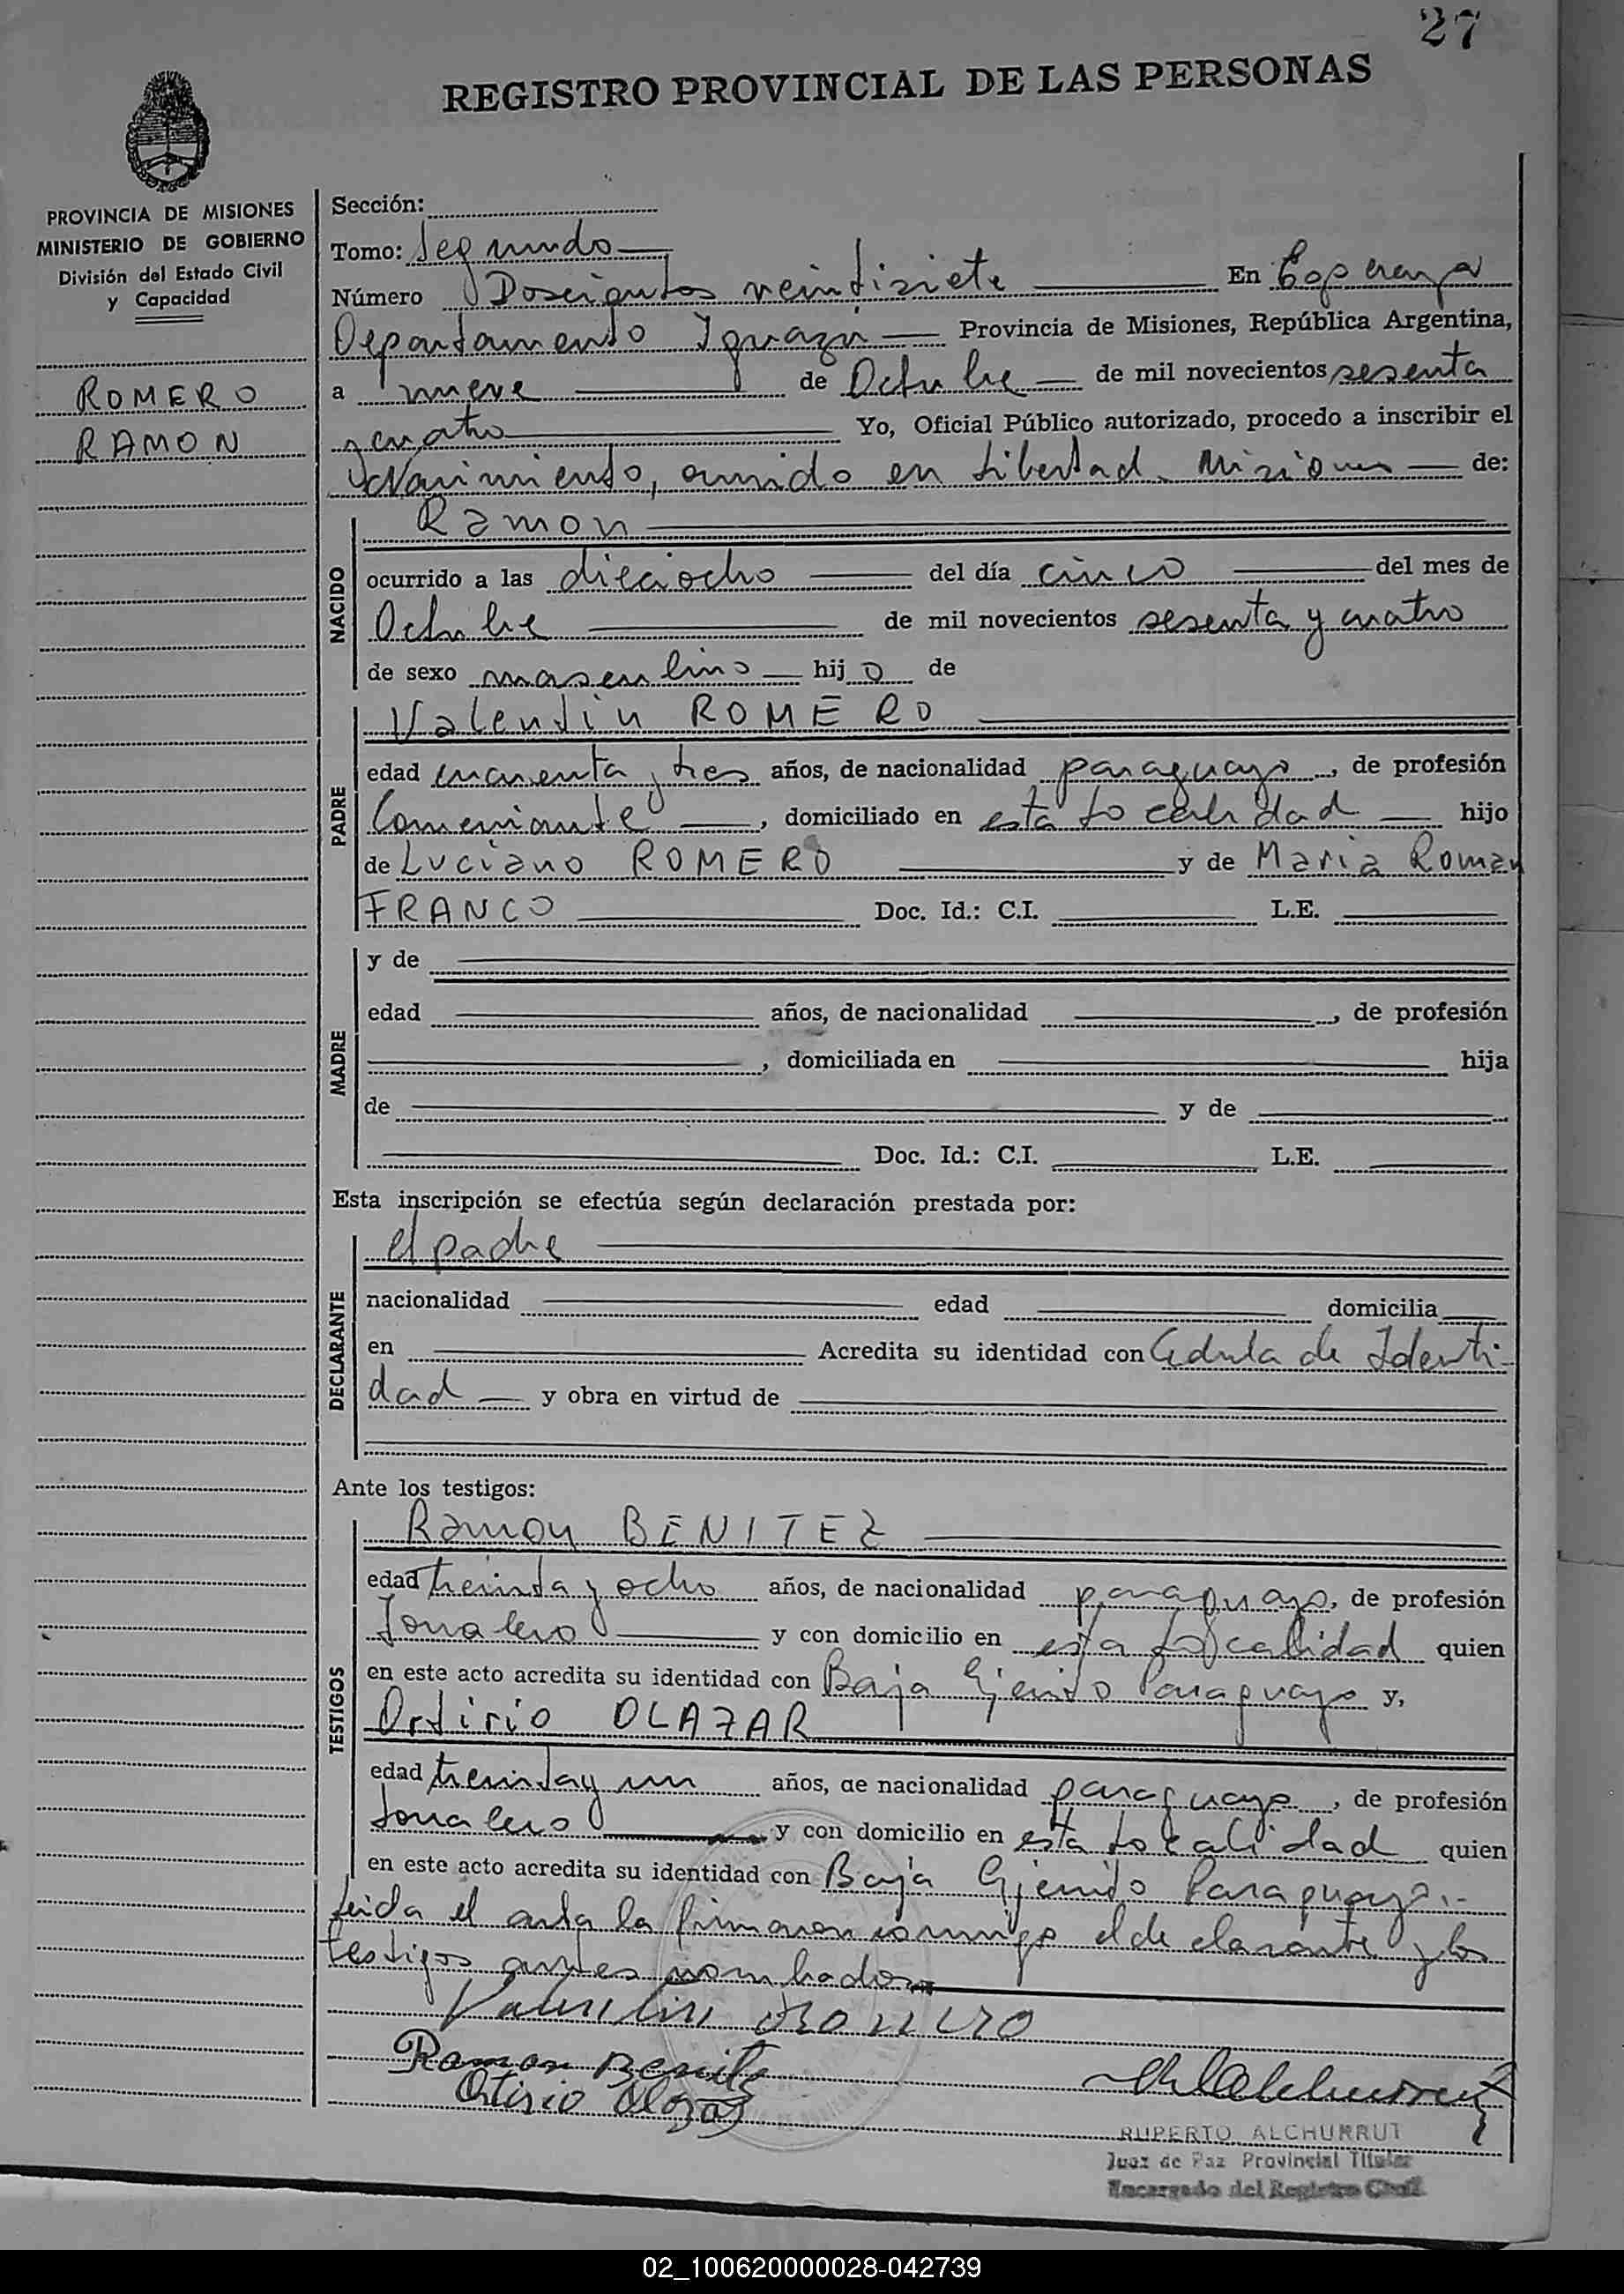 27
REGISTRO PROVINCIAL DE LAS PERSONAS
PROVINCIA DE MISIONES
MINISTERIO DE GOBIERNO
División del Estado Civil
y Capacidad
ROMERO
RAMON
Sección:
Tomo: Segundo
Número Doscientos veintisiete En Esperanza
Departamento Iguazú Provincia de Misiones, República Argentina,
a nueve de Octubre de mil novecientos sesenta
y cuatro Yo, Oficial Público autorizado, procedo a inscribir el
Nacimiento, ocurrido en Libertad Misiones de:
NACIDO
Ramon
ocurrido a las dieciocho del día cinco del mes de
Octubre de mil novecientos sesenta y cuatro
de sexo masculino hijo de
PADRE
Valentin ROMERO
edad cuarenta y tres años, de nacionalidad paraguayo, de profesión
Comerciante, domiciliado en esta localidad hijo
de Luciano ROMERO y de Maria Roman
FRANCO Doc. Id.: C.I. L.E.
MADRE
y de
edad años, de nacionalidad , de profesión
, domiciliada en hija
de y de
Doc. Id.: C.I. L.E.
Esta inscripción se efectúa según declaración prestada por:
DECLARANTE
el padre
nacionalidad edad domicilia
en Acredita su identidad con Cedula de Identi-
dad y obra en virtud de
Ante los testigos:
TESTIGOS
Ramon BENITEZ
edad treinta y ocho años, de nacionalidad paraguayo, de profesión
Jornalero y con domicilio en esta localidad quien
en este acto acredita su identidad con Baja Ejercito Paraguayo y,
Ortirio OLAZAR
edad treinta y un años, de nacionalidad paraguayo, de profesión
Jornalero y con domicilio en esta localidad quien
en este acto acredita su identidad con Baja Ejercito Paraguayo.-
Leida el acta la firmaron conmigo el declarante y los
testigos antes nombrados
Valentin Romero
Ramon Benitez
Ortirio Olazar
RUPERTO ALCHURRUT
Juez de Paz Provincial Titular
Encargado del Registro Civil
02_100620000028-042739